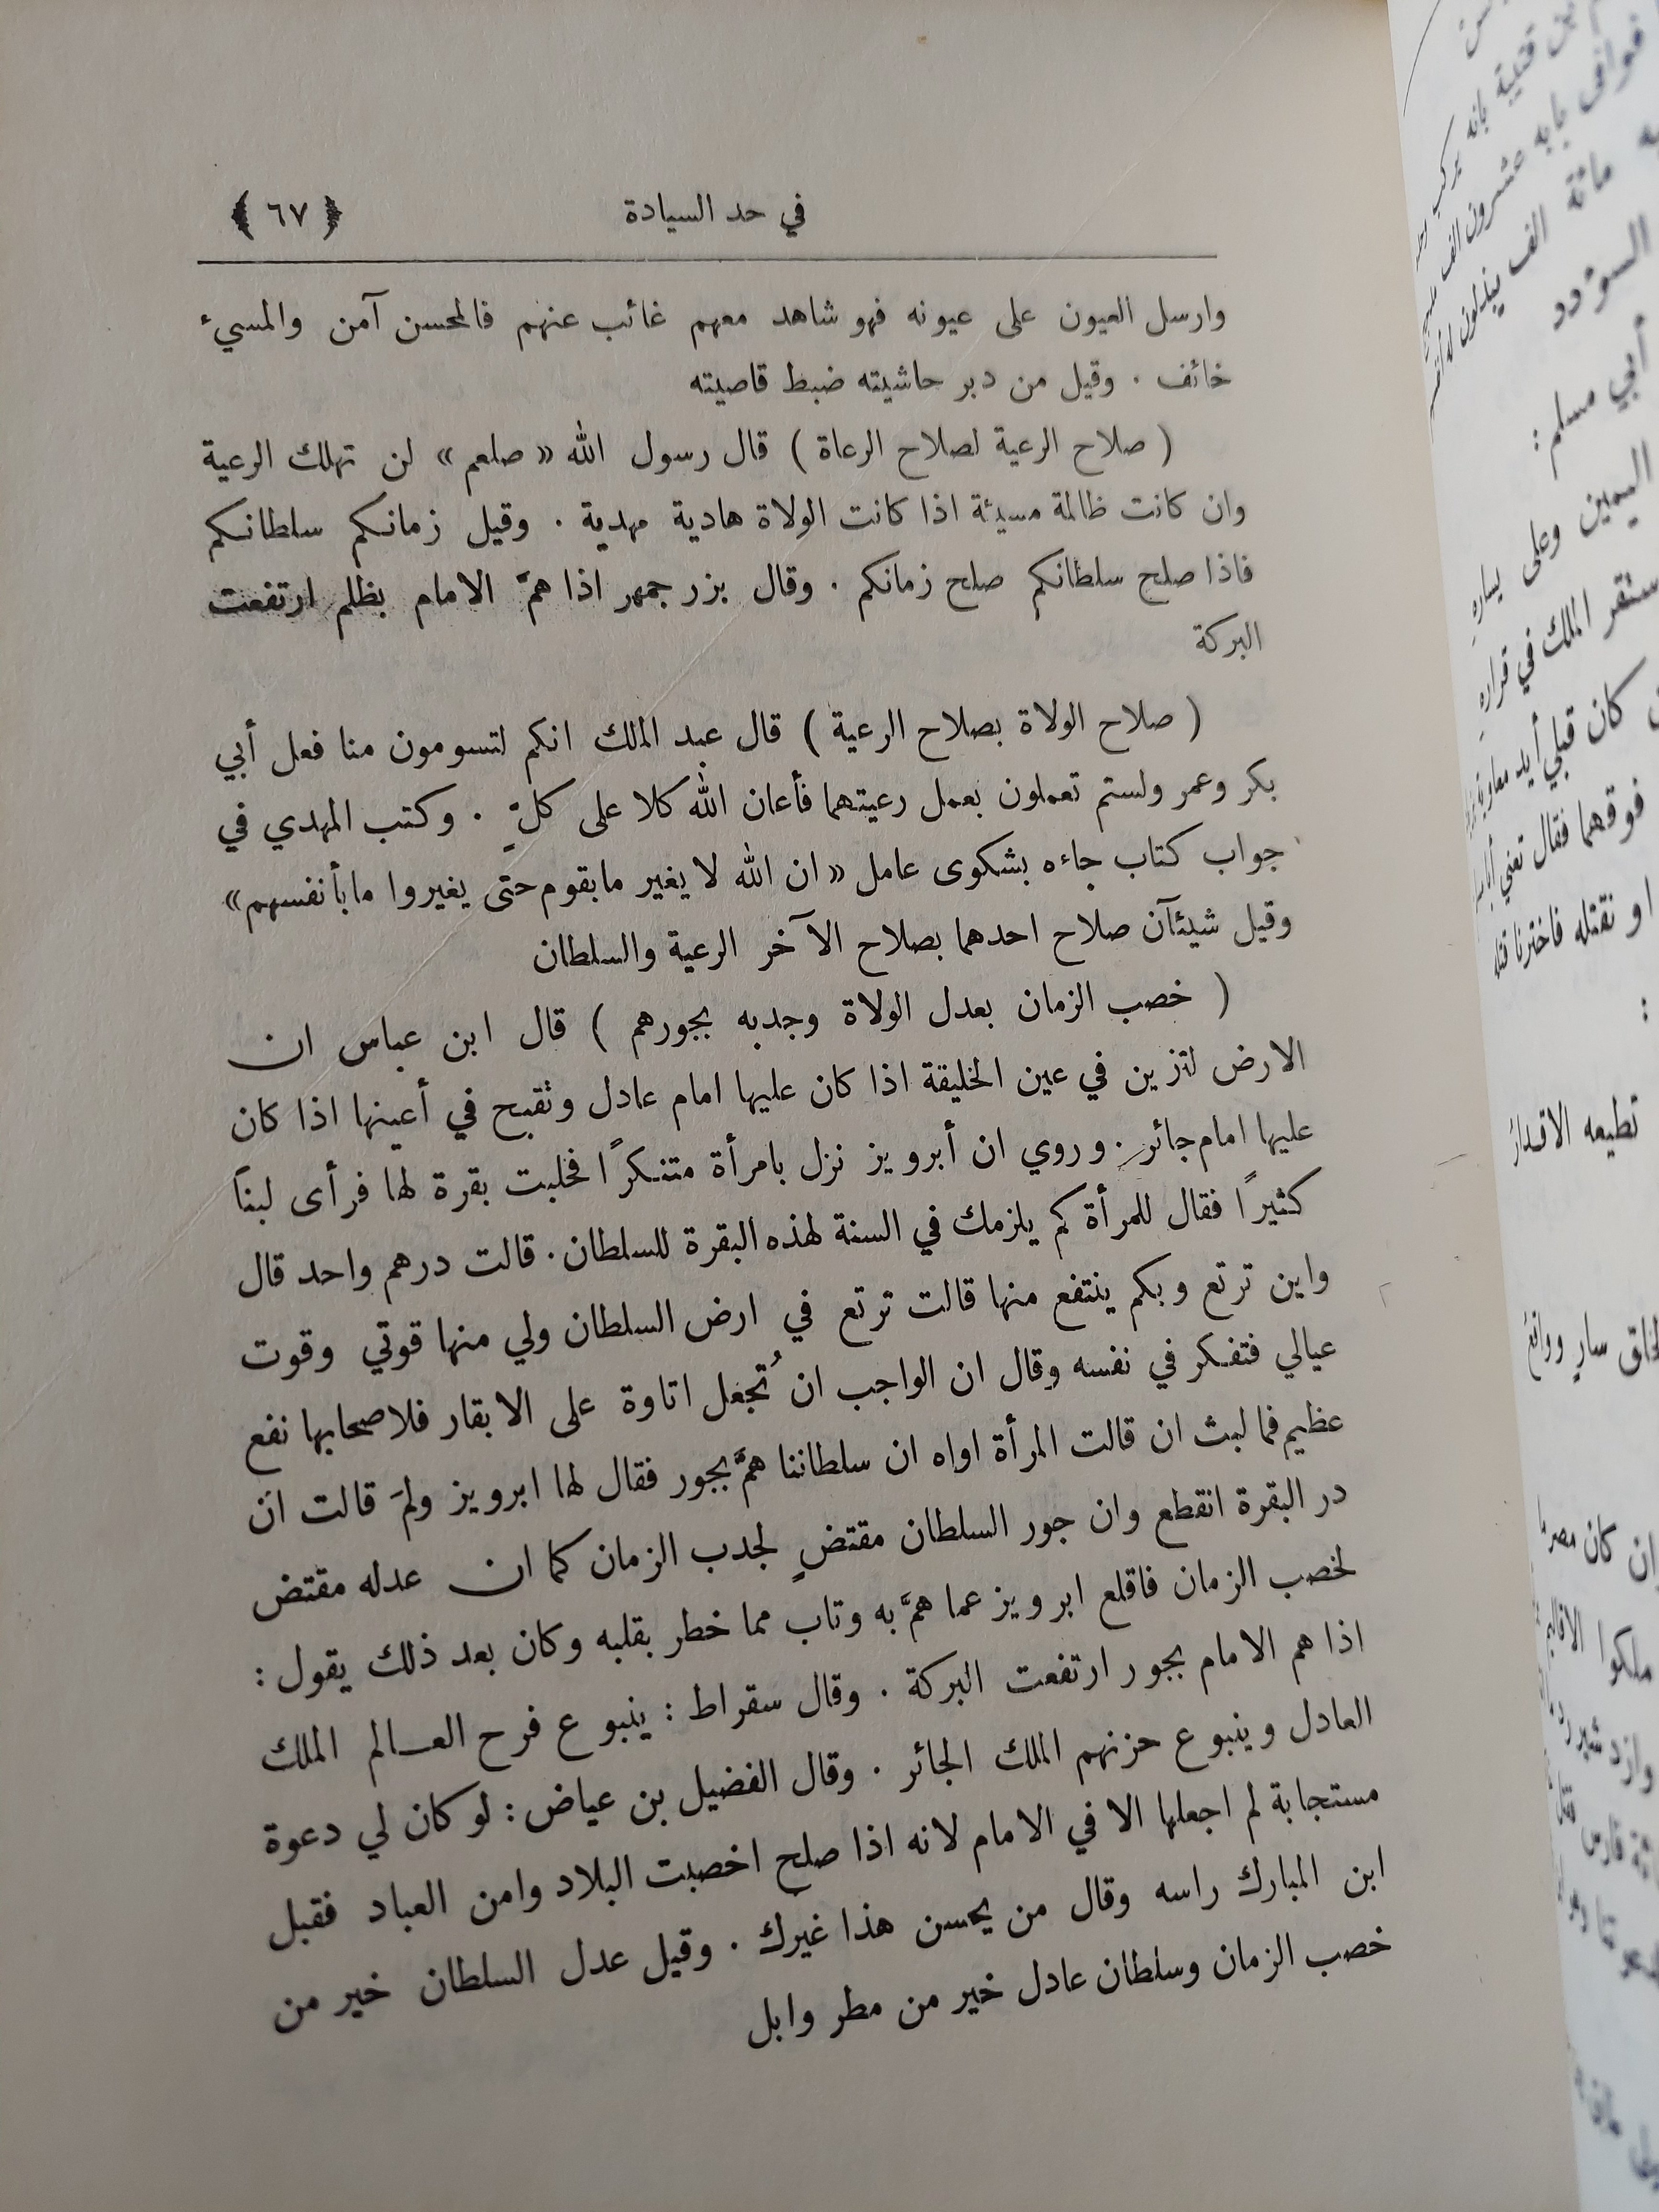 في حد السيادة ﴿ ٦٧ ﴾
وارسل العيون على عيونه فهو شاهد معهم غائب عنهم فالمحسن آمن والمسيء
خائف . وقيل من دبر حاشيته ضبط قاصيته
( صلاح الرعية لصلاح الرعاة ) قال رسول الله « صلعم » لن تهلك الرعية
وان كانت ظالمة مسيئة اذا كانت الولاة هادية مهدية . وقيل زمانكم سلطانكم
فاذا صلح سلطانكم صلح زمانكم . وقال بزرجمهر اذا همَّ الامام بظلم ارتفعت
البركة
( صلاح الولاة بصلاح الرعية ) قال عبد الملك انكم لتسومون منا فعل أبي
بكر وعمر ولستم تعملون بعمل رعيتهما فأعان الله كلا على كلٍّ . وكتب المهدي في
جواب كتاب جاءه بشكوى عامل « ان الله لا يغير مابقوم حتى يغيروا مابأنفسهم »
وقيل شيئآن صلاح احدهما بصلاح الآخر الرعية والسلطان
( خصب الزمان بعدل الولاة وجدبه بجورهم ) قال ابن عباس ان
الارض لتزين في عين الخليقة اذا كان عليها امام عادل وتقبح في أعينها اذا كان
عليها امام جائر . وروي ان أبرويز نزل بامرأة متنكرًا فحلبت بقرة لها فرأى لبنًا
كثيرًا فقال للمرأة كم يلزمك في السنة لهذه البقرة للسلطان . قالت درهم واحد قال
واين ترتع وبكم ينتفع منها قالت ترتع في ارض السلطان ولي منها قوتي وقوت
عيالي فتفكر في نفسه وقال ان الواجب ان تُجعل اتاوة على الابقار فلاصحابها نفع
عظيم فما لبث ان قالت المرأة اواه ان سلطاننا همَّ بجور فقال لها ابرويز ولمَ قالت ان
در البقرة انقطع وان جور السلطان مقتضٍ لجدب الزمان كما ان عدله مقتض
لخصب الزمان فاقلع ابرويز عما همَّ به وتاب مما خطر بقلبه وكان بعد ذلك يقول :
اذا هم الامام بجور ارتفعت البركة . وقال سقراط : ينبوع فرح العالم الملك
العادل وينبوع حزنهم الملك الجائر . وقال الفضيل بن عياض : لو كان لي دعوة
مستجابة لم اجعلها الا في الامام لانه اذا صلح اخصبت البلاد وامن العباد فقبل
ابن المبارك راسه وقال من يحسن هذا غيرك . وقيل عدل السلطان خير من
خصب الزمان وسلطان عادل خير من مطر وابل
قتيبة بانه
فوافى بابه عشرون الف
مائة الف
السؤدد
أبي مسلم :
اليمين وعلى يساره
الملك في قراره
كان قبلي أيد
فوقهما فقال
او نقتله فاخترنا
:
تطيعه الاقدار
سارٍ
كان
ملكوا